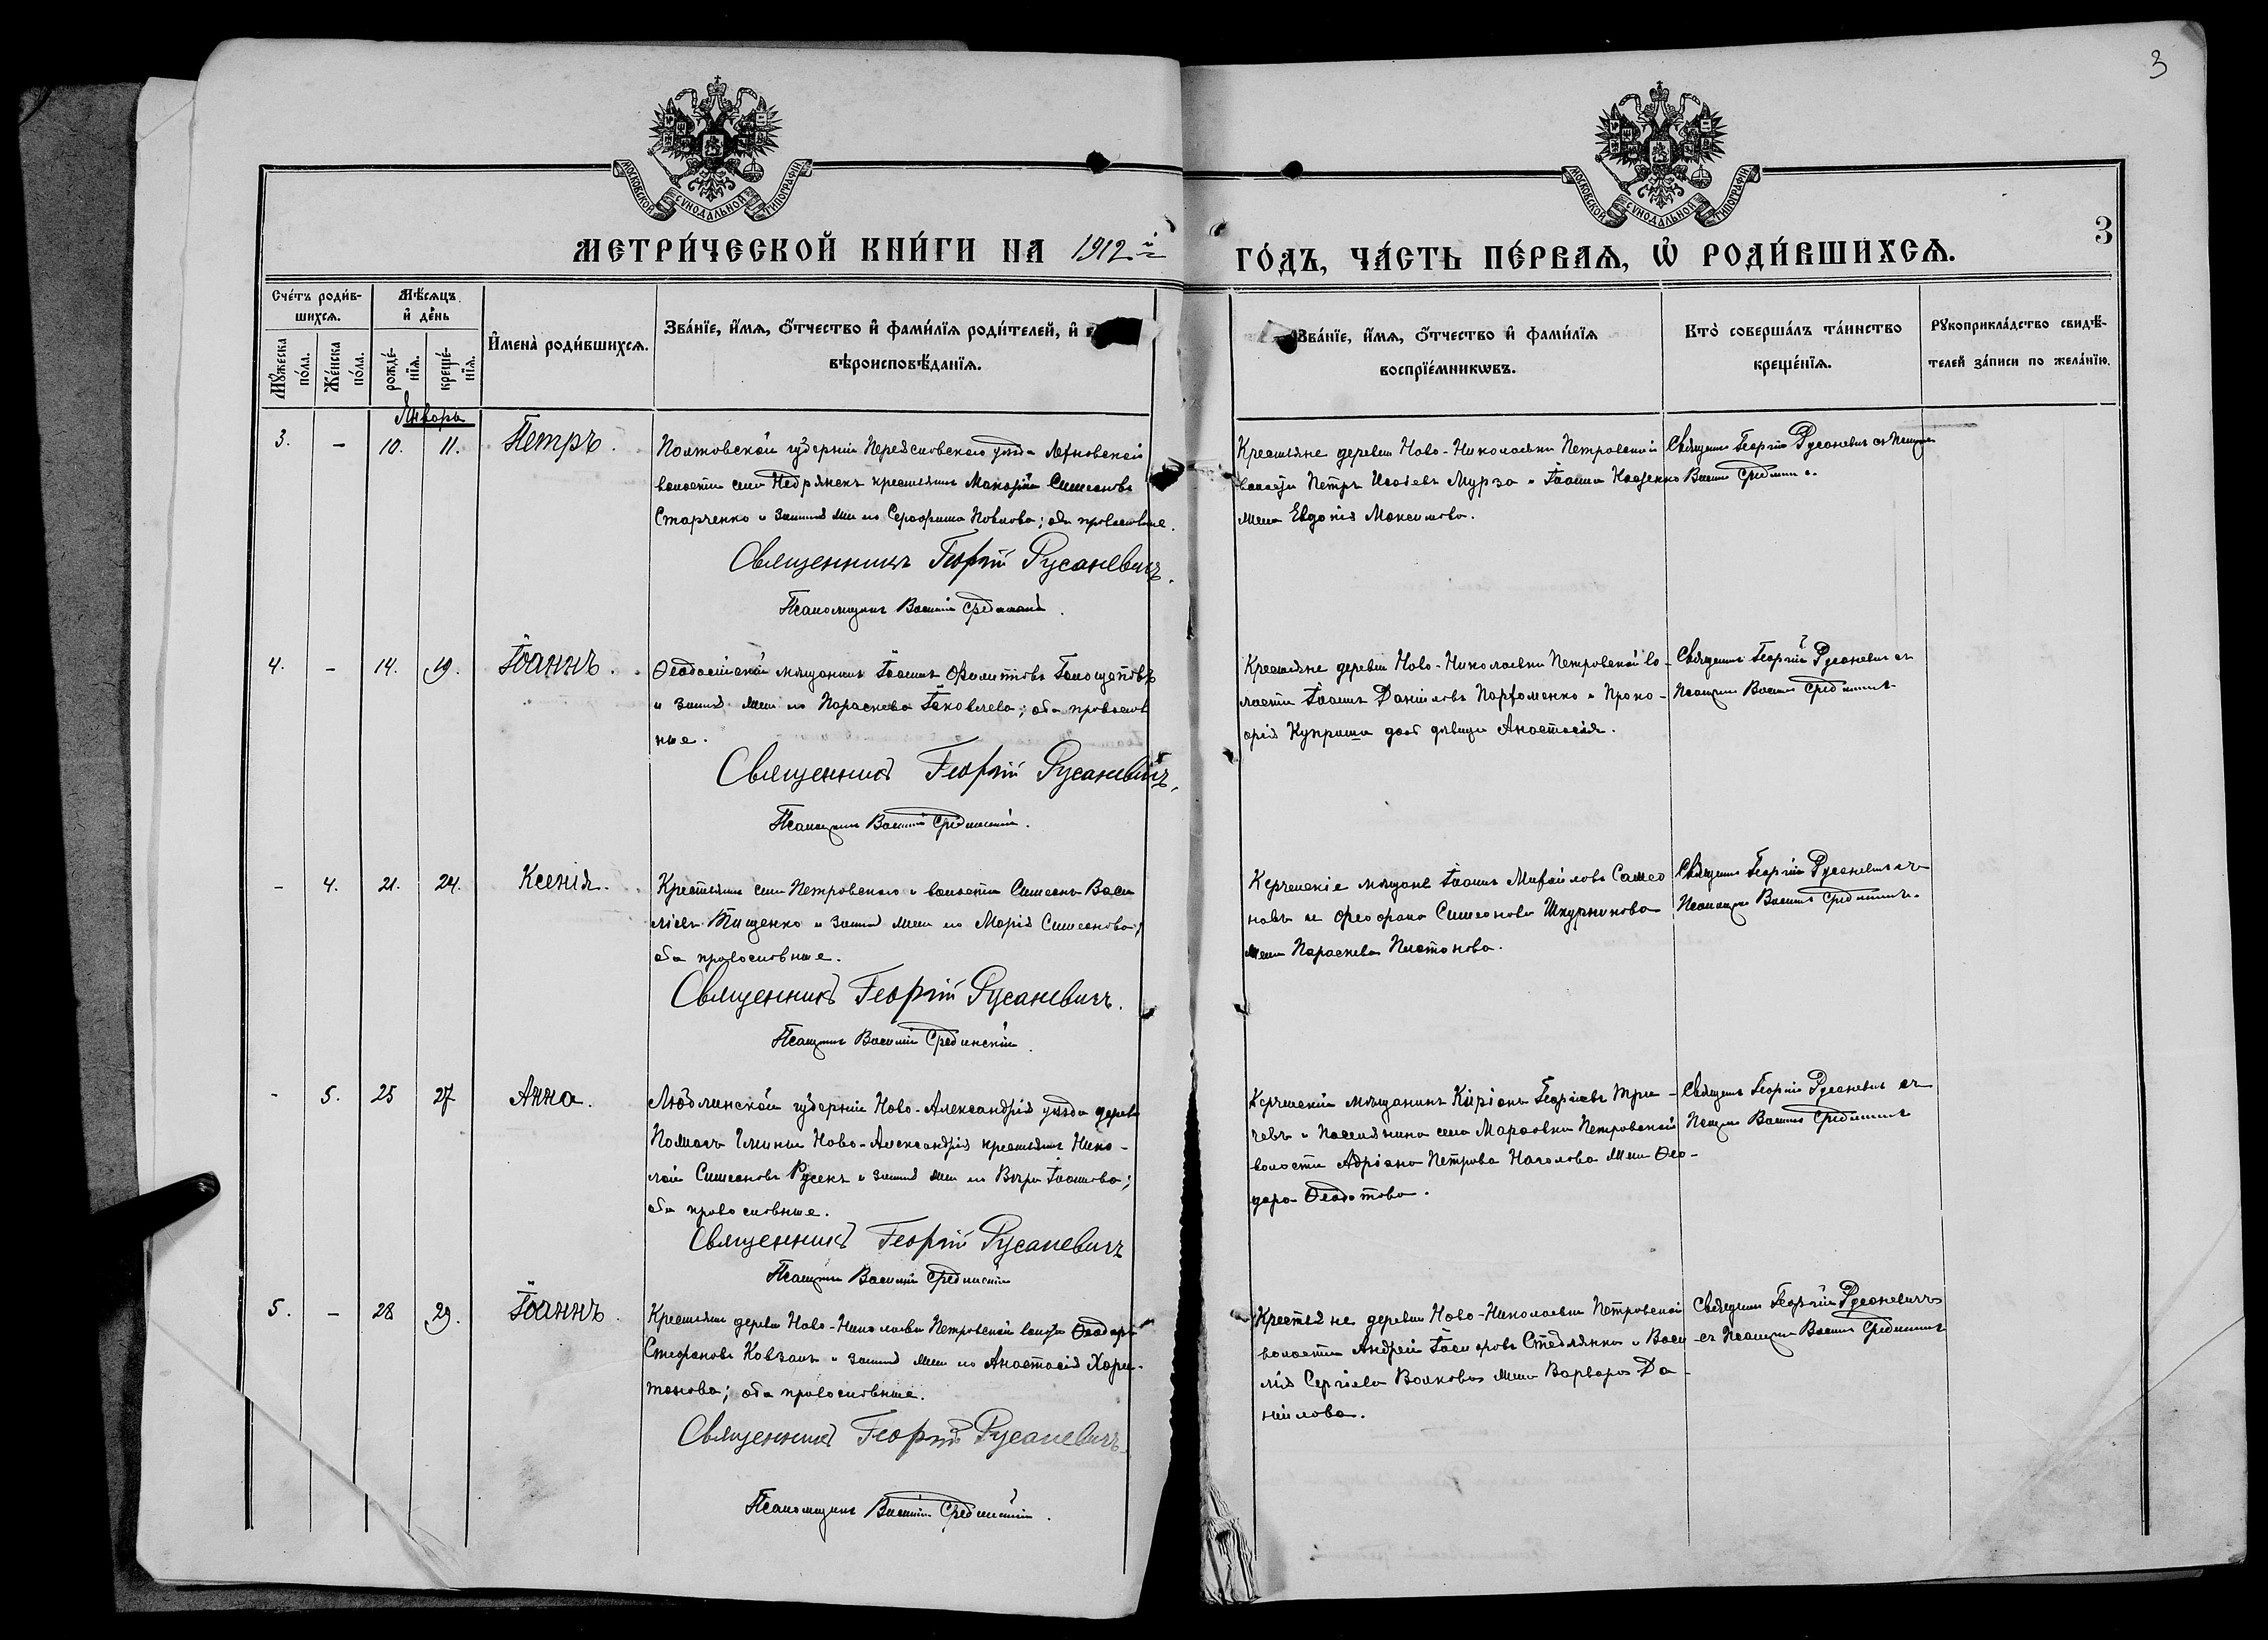 3
МОСКОВСКОЙ СѴНОДАЛЬНОЙ ТИПОГРАФІИ
МОСКОВСКОЙ СѴНОДАЛЬНОЙ ТИПОГРАФІИ
МЕТРИ́ЧЕСКОЙ КНИ́ГИ НА 1912 й
ГО́ДЪ, ЧА́СТЬ ПЕ́РВАЯ, Ѡ РОДИ́ВШИХСЯ.
3
Сче́тъ роди́в-
шихся.
Мѣ́сяцъ
и҆ де́нь
Мꙋ́жеска
по́ла.
Же́нска
по́ла.
рожде́-
нїя.
креще́-
нїя.
И҆мена̀ роди́вшихся.
Зва́нїе, и҆́мя, ѻ҆́тчество и҆ фами́лїя роди́телей, и҆
вѣроисповѣ́данїя.
Зва́нїе, и҆́мя, ѻ҆́тчество и҆ фами́лїя
воспрїе́мникѡвъ.
Кто̀ соверша́лъ та́инство
креще́нїя.
Рꙋкоприкла́дство свидѣ́-
телей за́писи по жела́нїю.
Январь
3. - 10. 11. Петръ.
Полтовской губерніи Переясловскаго уезда
волости села крестьянинъ Симеоновъ
Старченко и законная жена его Серафима Павлова; оба православные.
Священникъ Георгій Русаневичъ.
Псаломщикъ Василій Срединскій.
Крестьяне деревни Ново-Николаевки Петровской
волости Петръ Мурза и Іоанна
жена Евдокія Максимова.
Священникъ Георгій Русаневичъ съ псаломщ.
Василіемъ Срединскимъ.
4. - 14. 19. Іоаннъ.
Ѳеодосійскій мѣщанинъ Іоаннъ
и законная жена его Параскева Іаковлева; оба православ
ные.
Священникъ Георгій Русаневичъ.
Псаломщикъ Василій Срединскій.
Крестьяне деревни Ново-Николаевки Петровской во-
лости Іоаннъ Даніиловъ Парфоменко и Проко-
дочь дѣвица Анастасія.
Священникъ Георгій Русаневичъ съ
Псаломщикомъ Василіемъ Срединскимъ
- 4. 21. 24. Ксенія.
Крестьянинъ села Петровскаго и волости Симеонъ Васи
ліевъ Тищенко и законная жена его Марія Симеонова;
оба православные.
Священникъ Георгій Русаневичъ.
Псаломщикъ Василій Срединскій
Керченскіе мѣщане Іоаннъ Михаиловъ Самсо
новъ и Симеонова Шкурникова
жена Параскева Платонова.
Священникъ Георгій Русаневичъ съ
Псаломщикомъ Василіемъ Срединскимъ.
- 5. 25 27 Анна.
Люблинской губерніи Ново-Александрія уезда деревни
гмины Ново-Александрія крестьянинъ Нико-
лай Симеоновъ Русекъ и законная жена его Вѣра Іоаннова;
оба православные.
Священникъ Георгій Русаневичъ
Псаломщикъ Василій Срединскій
Керченскій мѣщанинъ Киріонъ Георгіевъ
и поселянина села Марфовки Петровской
волости Адріана Петрова жена Ѳео-
дора Ѳеодотова.
Священникъ Георгій Русаневичъ съ
Псаломщикомъ Василіемъ Срединскимъ
5. - 28 29. Іоаннъ.
Крестьянинъ деревни Ново-Николаевки Петровской волости Ѳеодоръ
Стефановъ Ковзанъ и законная жена его Анастасія Хари-
тонова; оба православные.
Священникъ Георгій Русаневичъ.
Псаломщикъ Василій Срединскій.
Крестьяне деревни Ново-Николаевки Петровской
волости Андрей и Васи
лія Сергіева Волкова жена Варвара Да-
ніилова.
Священникъ Георгій Русаневичъ
съ Псаломщикомъ Василіемъ Срединскимъ